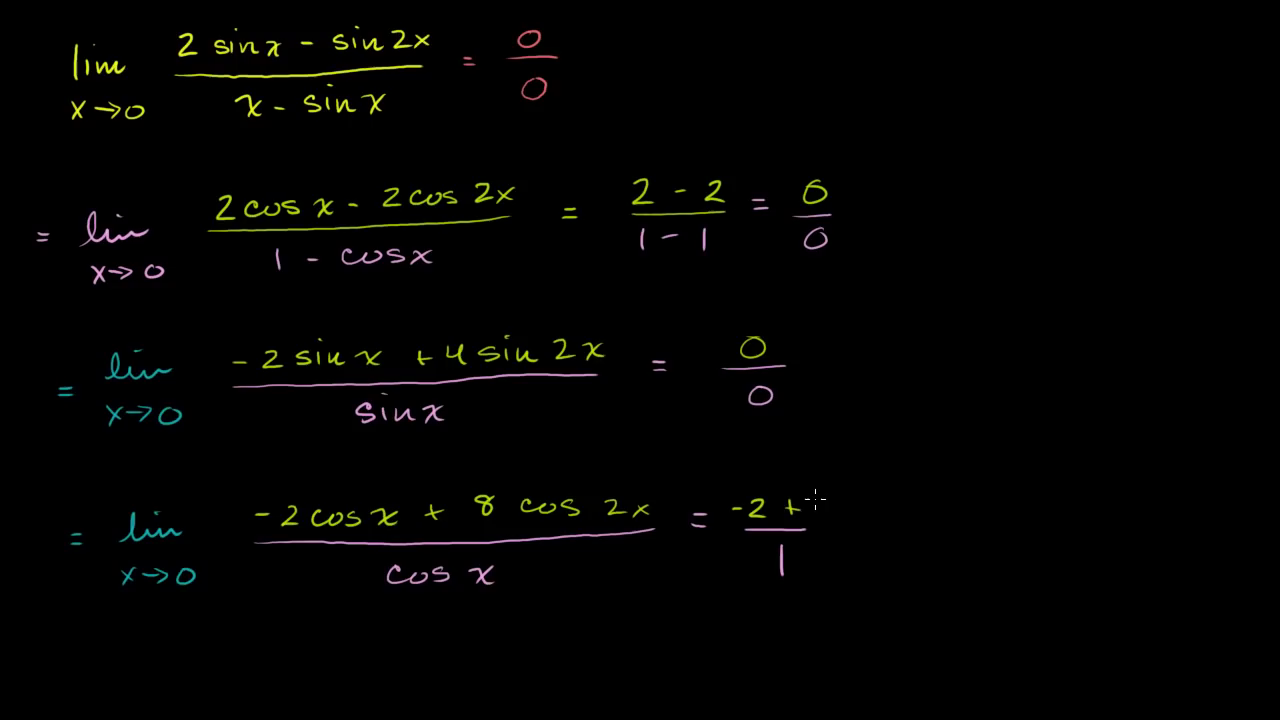 lim x→0 (2 sin x - sin 2x)/(x - sin x) = 0/0
= lim x→0 (2 cos x - 2 cos 2x)/(1 - cos x) = (2 - 2)/(1 - 1) = 0/0
= lim x→0 (-2 sin x + 4 sin 2x)/(sin x) = 0/0
= lim x→0 (-2 cos x + 8 cos 2x)/(cos x) = (-2 +)/1